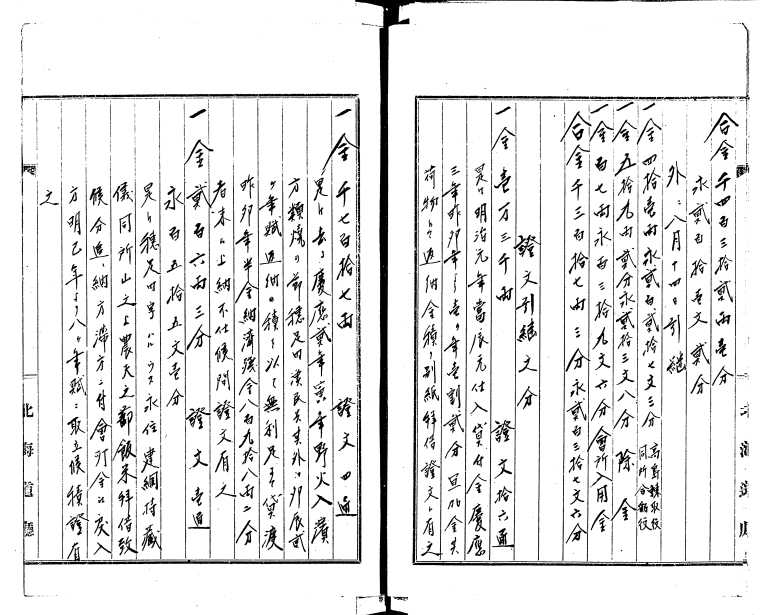 合金千四百三拾貳両壱分
永貳百拾壱文貳分
外ニ八月十四日引継
一金四拾壱両永貳百貳拾七文三分
一金五拾九両貳分永貳拾三文八分 除金
一金百七両永百三拾九文六分會所入用金
合金千三百拾七両三分永貳百三拾七文六分
證文引継之分
一金壱万三千両 證文拾六通
是ハ明治元年當辰元仕入貸付金慶應
三年昨卯年ゟ壱ヶ年壱割貳分 金
荷物ニ而返納金積り別紙拝借證文ニ有之
一金千七百拾七両 證文四通
是ハ去ル慶應貳年寅年野火入
方類焼ノ節穂足内漁民共其外江卯辰貳
ヶ年賦返納ノ積ヲ以て無利足ニ而貸渡
昨卯年半金納済残金八百九拾八両二分
者未ニ上納不仕候間證文有之
一金貳百六両三分 證文壱通
永百五拾五文壱分
是ハ穂足内字ハルウス永住建網持蔵
儀同所山之上農夫之節飯米拝借致
候分返納方滞方ニ付會所金ゟ戻入
方明巳年ゟ八ヶ年賦ニ取立候積證有
之
北海道廳